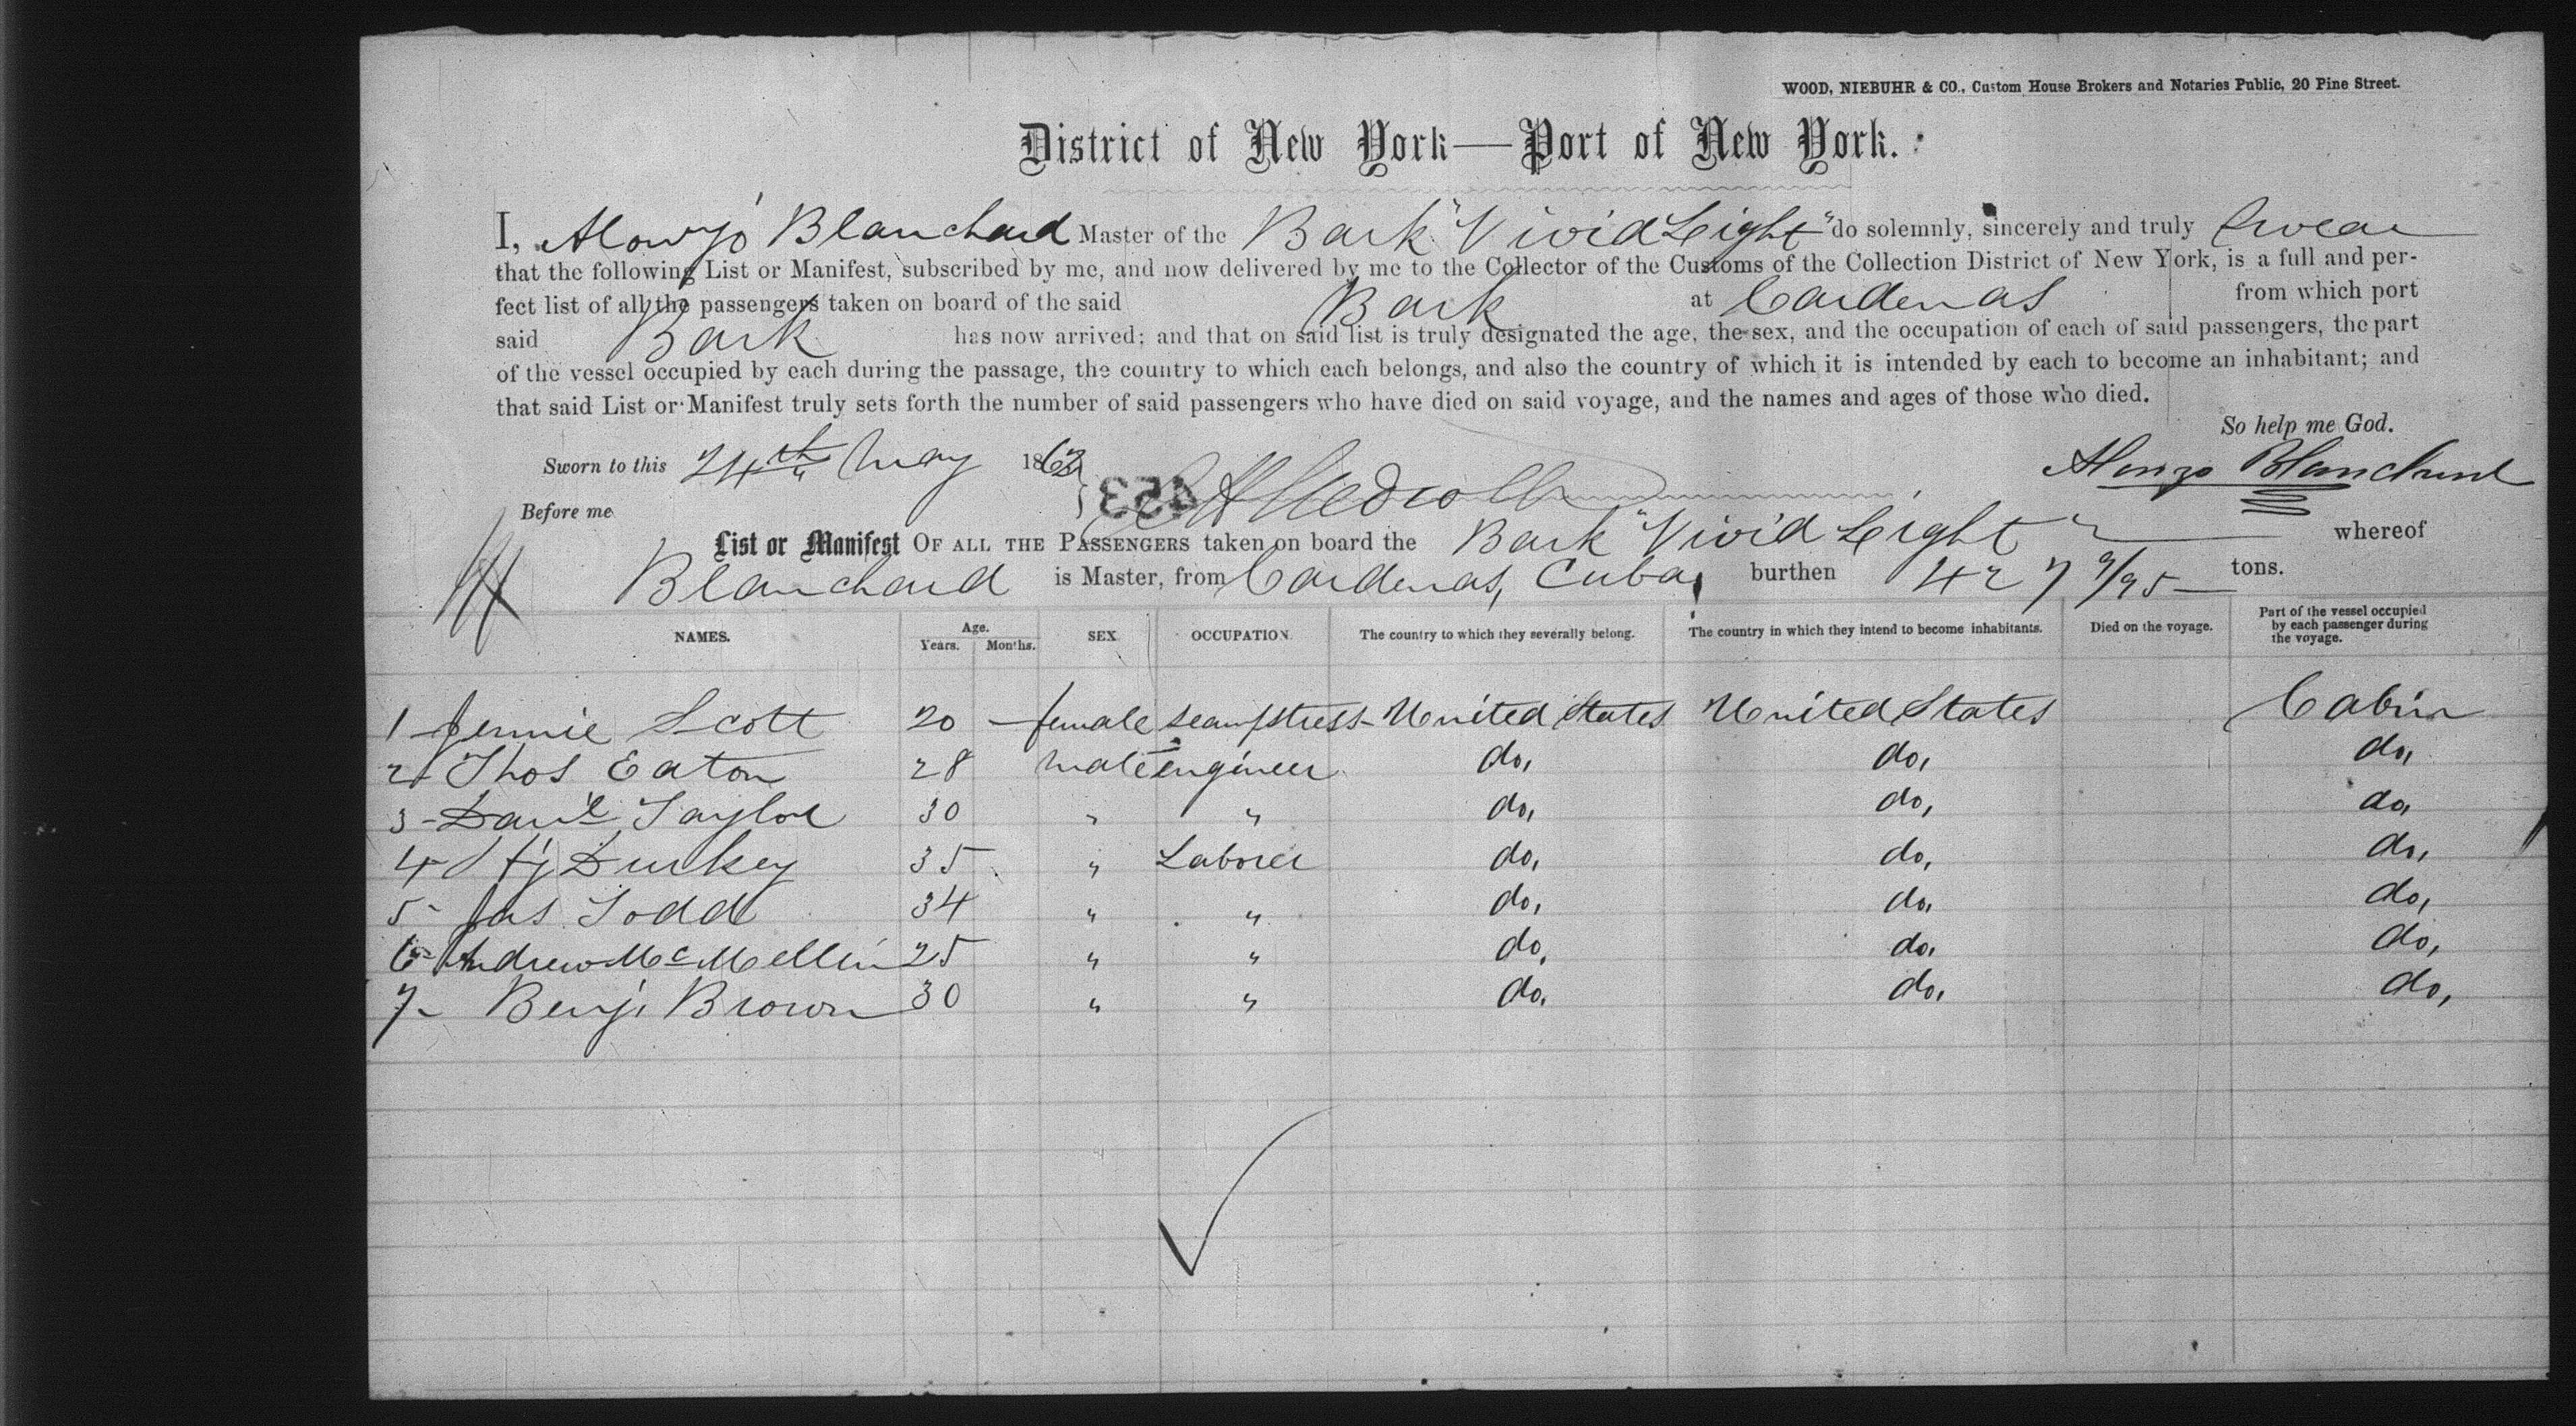 WOOD, NIEBUHR & CO., Custom House Brokers and Notaries Public, 20 Pine Street.
District of New York—Port of New York.
I, Alonzo Blanchard Master of the Bark "Vivid Light" do solemnly, sincerely and truly swear
that the following List or Manifest, subscribed by me, and now delivered by me to the Collector of the Customs of the Collection District of New York, is a full and per-
fect list of all the passengers taken on board of the said Bark at Cardenas from which port
said Bark has now arrived; and that on said list is truly designated the age, the sex, and the occupation of each of said passengers, the part
of the vessel occupied by each during the passage, the country to which each belongs, and also the country of which it is intended by each to become an inhabitant; and
that said List or Manifest truly sets forth the number of said passengers who have died on said voyage, and the names and ages of those who died.
So help me God.
Sworn to this 24th May 1863 Alonzo Blanchard
453
Before me
List or Manifest OF ALL THE PASSENGERS taken on board the Bark "Vivid Light" whereof
Blanchard is Master, from Cardenas, Cuba, burthen 427 9/95 tons.
NAMES. Age. Years. Months. SEX. OCCUPATION. The country to which they severally belong. The country in which they intend to become inhabitants. Died on the voyage. Part of the vessel occupied by each passenger during the voyage.
1 Jennie Scott 20 female seamstress United States United States Cabin
2 Thos Eaton 28 male engineer do, do, do,
3 - Danl Taylor 30 " " do, do, do,
4 Durkey 35 " Laborer do, do, do,
5 - Jas Todd 34 " " do, do, do,
6 - Andrew McMellin 25 " " do, do, do,
7 - Benj. Brown 30 " " do, do, do,